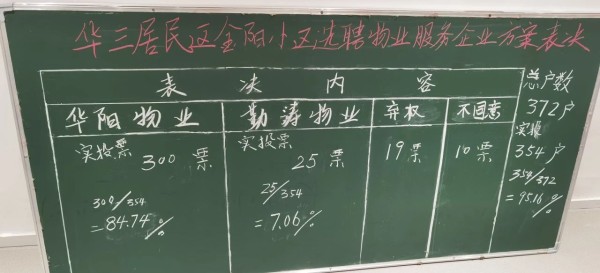 华三居民区金阳小区选聘物业服务企业方案表决
表决内容
总户数
372户
华阳物业
勤涛物业
弃权
不同意
实投票
300票
实投票
25票
19票
10票
实投
354户
300/354
=84.74%
25/354
=7.06%
354/372
=95.16%